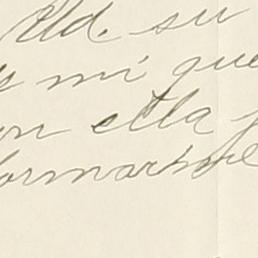 Ud. su
mi que
on ella
formarme